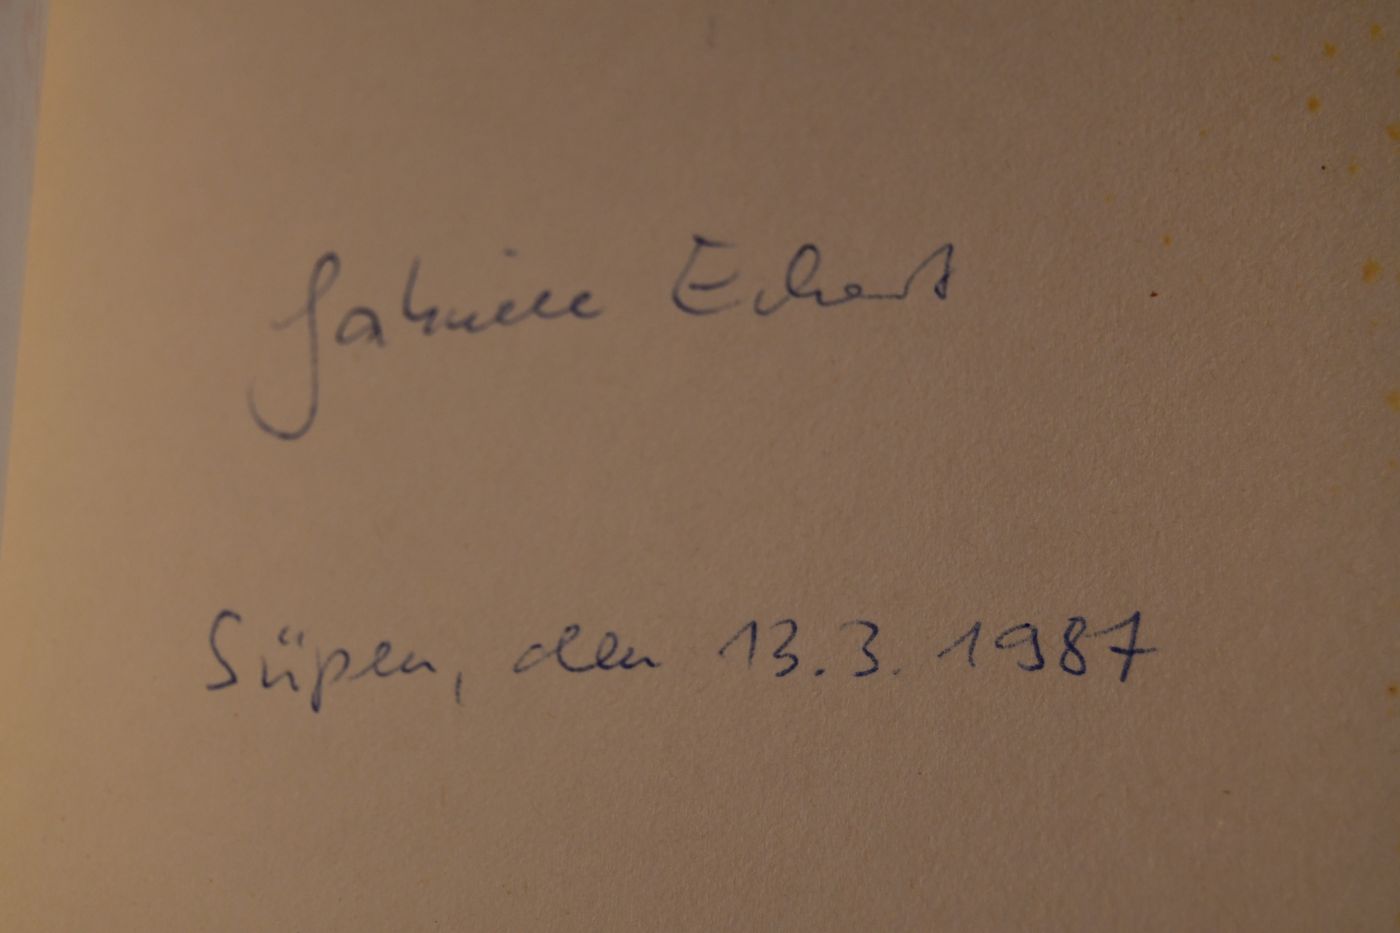 Gabriele Eckart
Süpen, den 13.3.1987